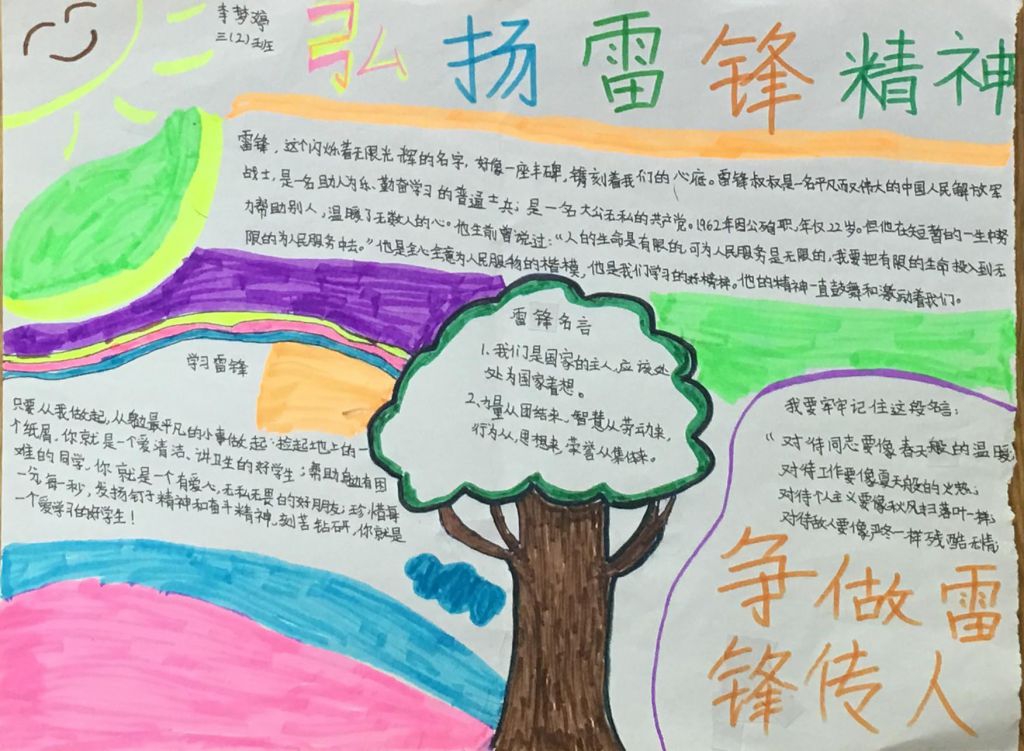 李梦婷
三(2)班
弘扬雷锋精神
雷锋，这个闪烁着无限光辉的名字，好像一座丰碑，镌刻着我们的心底。雷锋叔叔是一名平凡而又伟大的中国人民解放军
战士，是一名助人为乐、勤奋学习的普通士兵；是一名大公无私的共产党。1962年因公殉职，年仅22岁。但他在短暂的一生中努
力帮助别人，温暖了无数人的心。他生前曾说过：“人的生命是有限的，可为人民服务是无限的，我要把有限的生命投入到无
限的为人民服务中去。”他是全心全意为人民服务的楷模，他是我们学习的好榜样。他的精神一直鼓舞和激励着我们。
雷锋名言
1.我们是国家的主人，应该处
处为国家着想。
2.力量从团结来，智慧从劳动来，
行为从思想来，荣誉从集体来。
学习雷锋
只要从我做起，从最平凡的小事做起：捡起地上的一
个纸屑，你就是一个爱清洁、讲卫生的好学生；帮助有困
难的同学，你就是一个有爱心，无私无畏的好朋友；珍惜每
一分每一秒，发扬钉子精神和奋斗精神，刻苦钻研，你就是
一个爱学习的好学生！
我要牢牢记住这段名言：
“对待同志要像春天般的温暖
对待工作要像夏天般的火热；
对待个人主义要像秋风扫落叶一样；
对待敌人要像严冬一样残酷无情
争做雷
锋传人